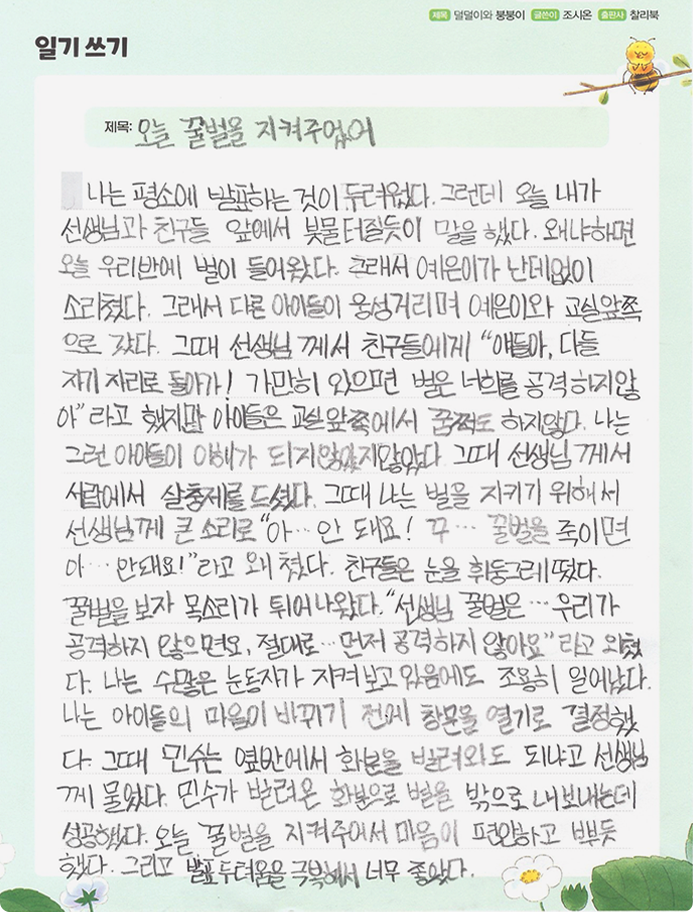 제목 덜덜이와 붕붕이 글쓴이 조시온 출판사 찰리북
일기 쓰기
제목: 오늘 꿀벌을 지켜주었어
나는 평소에 발표하는 것이 두려웠다. 그런데 오늘 내가
선생님과 친구들 앞에서 봇물터질듯이 말을 했다. 왜냐하면
오늘 우리반에 벌이 들어왔다. 그래서 예은이가 난데없이
소리쳤다. 그래서 다른 아이들이 웅성거리며 예은이와 교실앞쪽
으로 갔다. 그때 선생님께서 친구들에게 “얘들아, 다들
자기 자리로 돌아가! 가만히 있으면 벌은 너희를 공격하지않
아”라고 했지만 아이들은 교실앞쪽에서 꿈쩍도 하지않았다. 나는
그런 아이들이 이해가 되지않았다. 그때 선생님께서
서랍에서 살충제를 드셨다. 그때 나는 벌을 지키기 위해서
선생님께 큰 소리로 “아…안 돼요! 꾸… 꿀벌을 죽이면
아…안돼요!”라고 외쳤다. 친구들은 눈을 휘둥그레 떴다.
꿀벌을 보자 목소리가 튀어나왔다. “선생님 꿀벌은…우리가
공격하지 않으면요, 절대로…먼저 공격하지 않아요”라고 외쳤
다. 나는 수많은 눈동자가 지켜보고있음에도 조용히 일어났다.
나는 아이들의 마음이 바뀌기 전에 창문을 열기로 결정했
다. 그때 민수는 옆반에서 화분을 빌려와도 되냐고 선생님
께 물었다. 민수가 빌려온 화분으로 벌을 밖으로 내보내는데
성공했다. 오늘 꿀벌을 지켜주어서 마음이 편안하고 뿌듯
했다. 그리고 발표두려움을 극복해서 너무 좋았다.